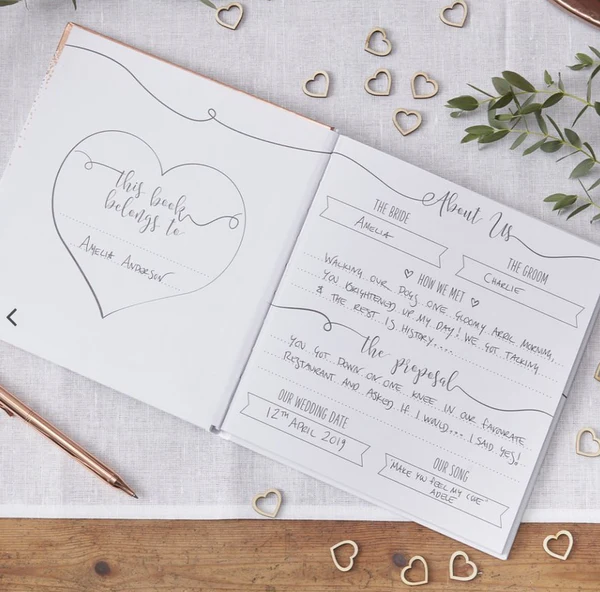 this book
belongs to
AMELIA ANDERSON
About Us
THE BRIDE
AMELIA
THE GROOM
CHARLIE
HOW WE MET
WALKING OUR DOGS ONE GLOOMY APRIL MORNING,
YOU BRIGHTENED UP MY DAY! WE GOT TALKING
& THE REST IS HISTORY....
the proposal
YOU GOT DOWN ON ONE KNEE IN OUR FAVOURITE
RESTAURANT AND ASKED IF I WOULD.... I SAID YES!
OUR WEDDING DATE
12TH APRIL 2019
OUR SONG
MAKE YOU FEEL MY LOVE
ADELE